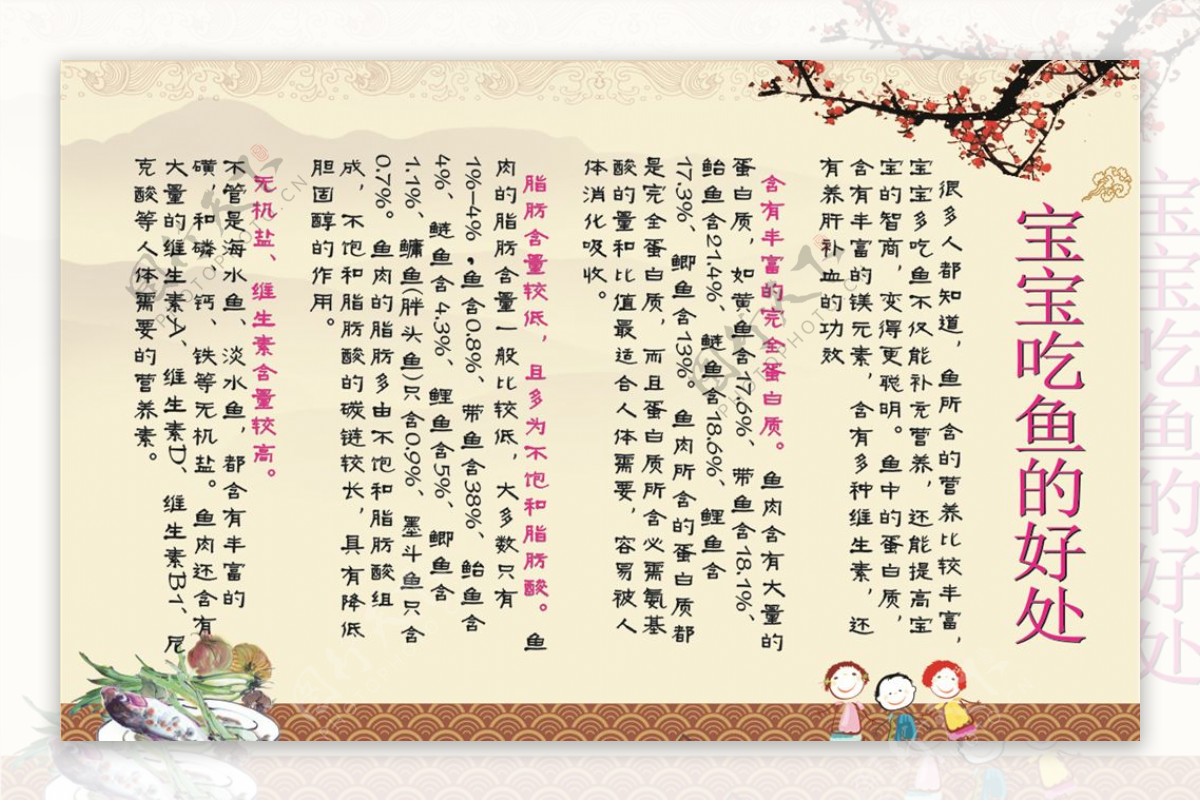 宝宝吃鱼的好处
很多人都知道，鱼所含的营养比较丰富，
宝宝多吃鱼不仅能补充营养，还能提高宝
宝的智商，变得更聪明。鱼中的蛋白质，
含有丰富的镁元素，含有多种维生素，还
有养肝补血的功效
含有丰富的完全蛋白质。鱼肉含有大量的
蛋白质，如黄鱼含17.6%、带鱼含18.1%、
鲐鱼含21.4%、鲢鱼含18.6%、鲤鱼含
17.3%、鲫鱼含13%。鱼肉所含的蛋白质都
是完全蛋白质，而且蛋白质所含必需氨基
酸的量和比值最适合人体需要，容易被人
体消化吸收。
脂肪含量较低，且多为不饱和脂肪酸。鱼
肉的脂肪含量一般比较低，大多数只有
1%—4%，鱼含0.8%、带鱼含38%、鲐鱼含
4%、鲢鱼含4.3%、鲤鱼含5%、鲫鱼含
1.1%、鳙鱼(胖头鱼)只含0.9%、墨斗鱼只含
0.7%。鱼肉的脂肪多由不饱和脂肪酸组
成，不饱和脂肪酸的碳链较长，具有降低
胆固醇的作用。
无机盐、维生素含量较高。
不管是海水鱼、淡水鱼，都含有丰富的
磺，和磷、钙、铁等无机盐。鱼肉还含有
大量的维生素A、维生素D、维生素B1、尼
克酸等人体需要的营养素。
图行天下
PHOTOPHOTO.CN
图行天下
PHOTOPHOTO.CN
宝宝吃鱼的好处